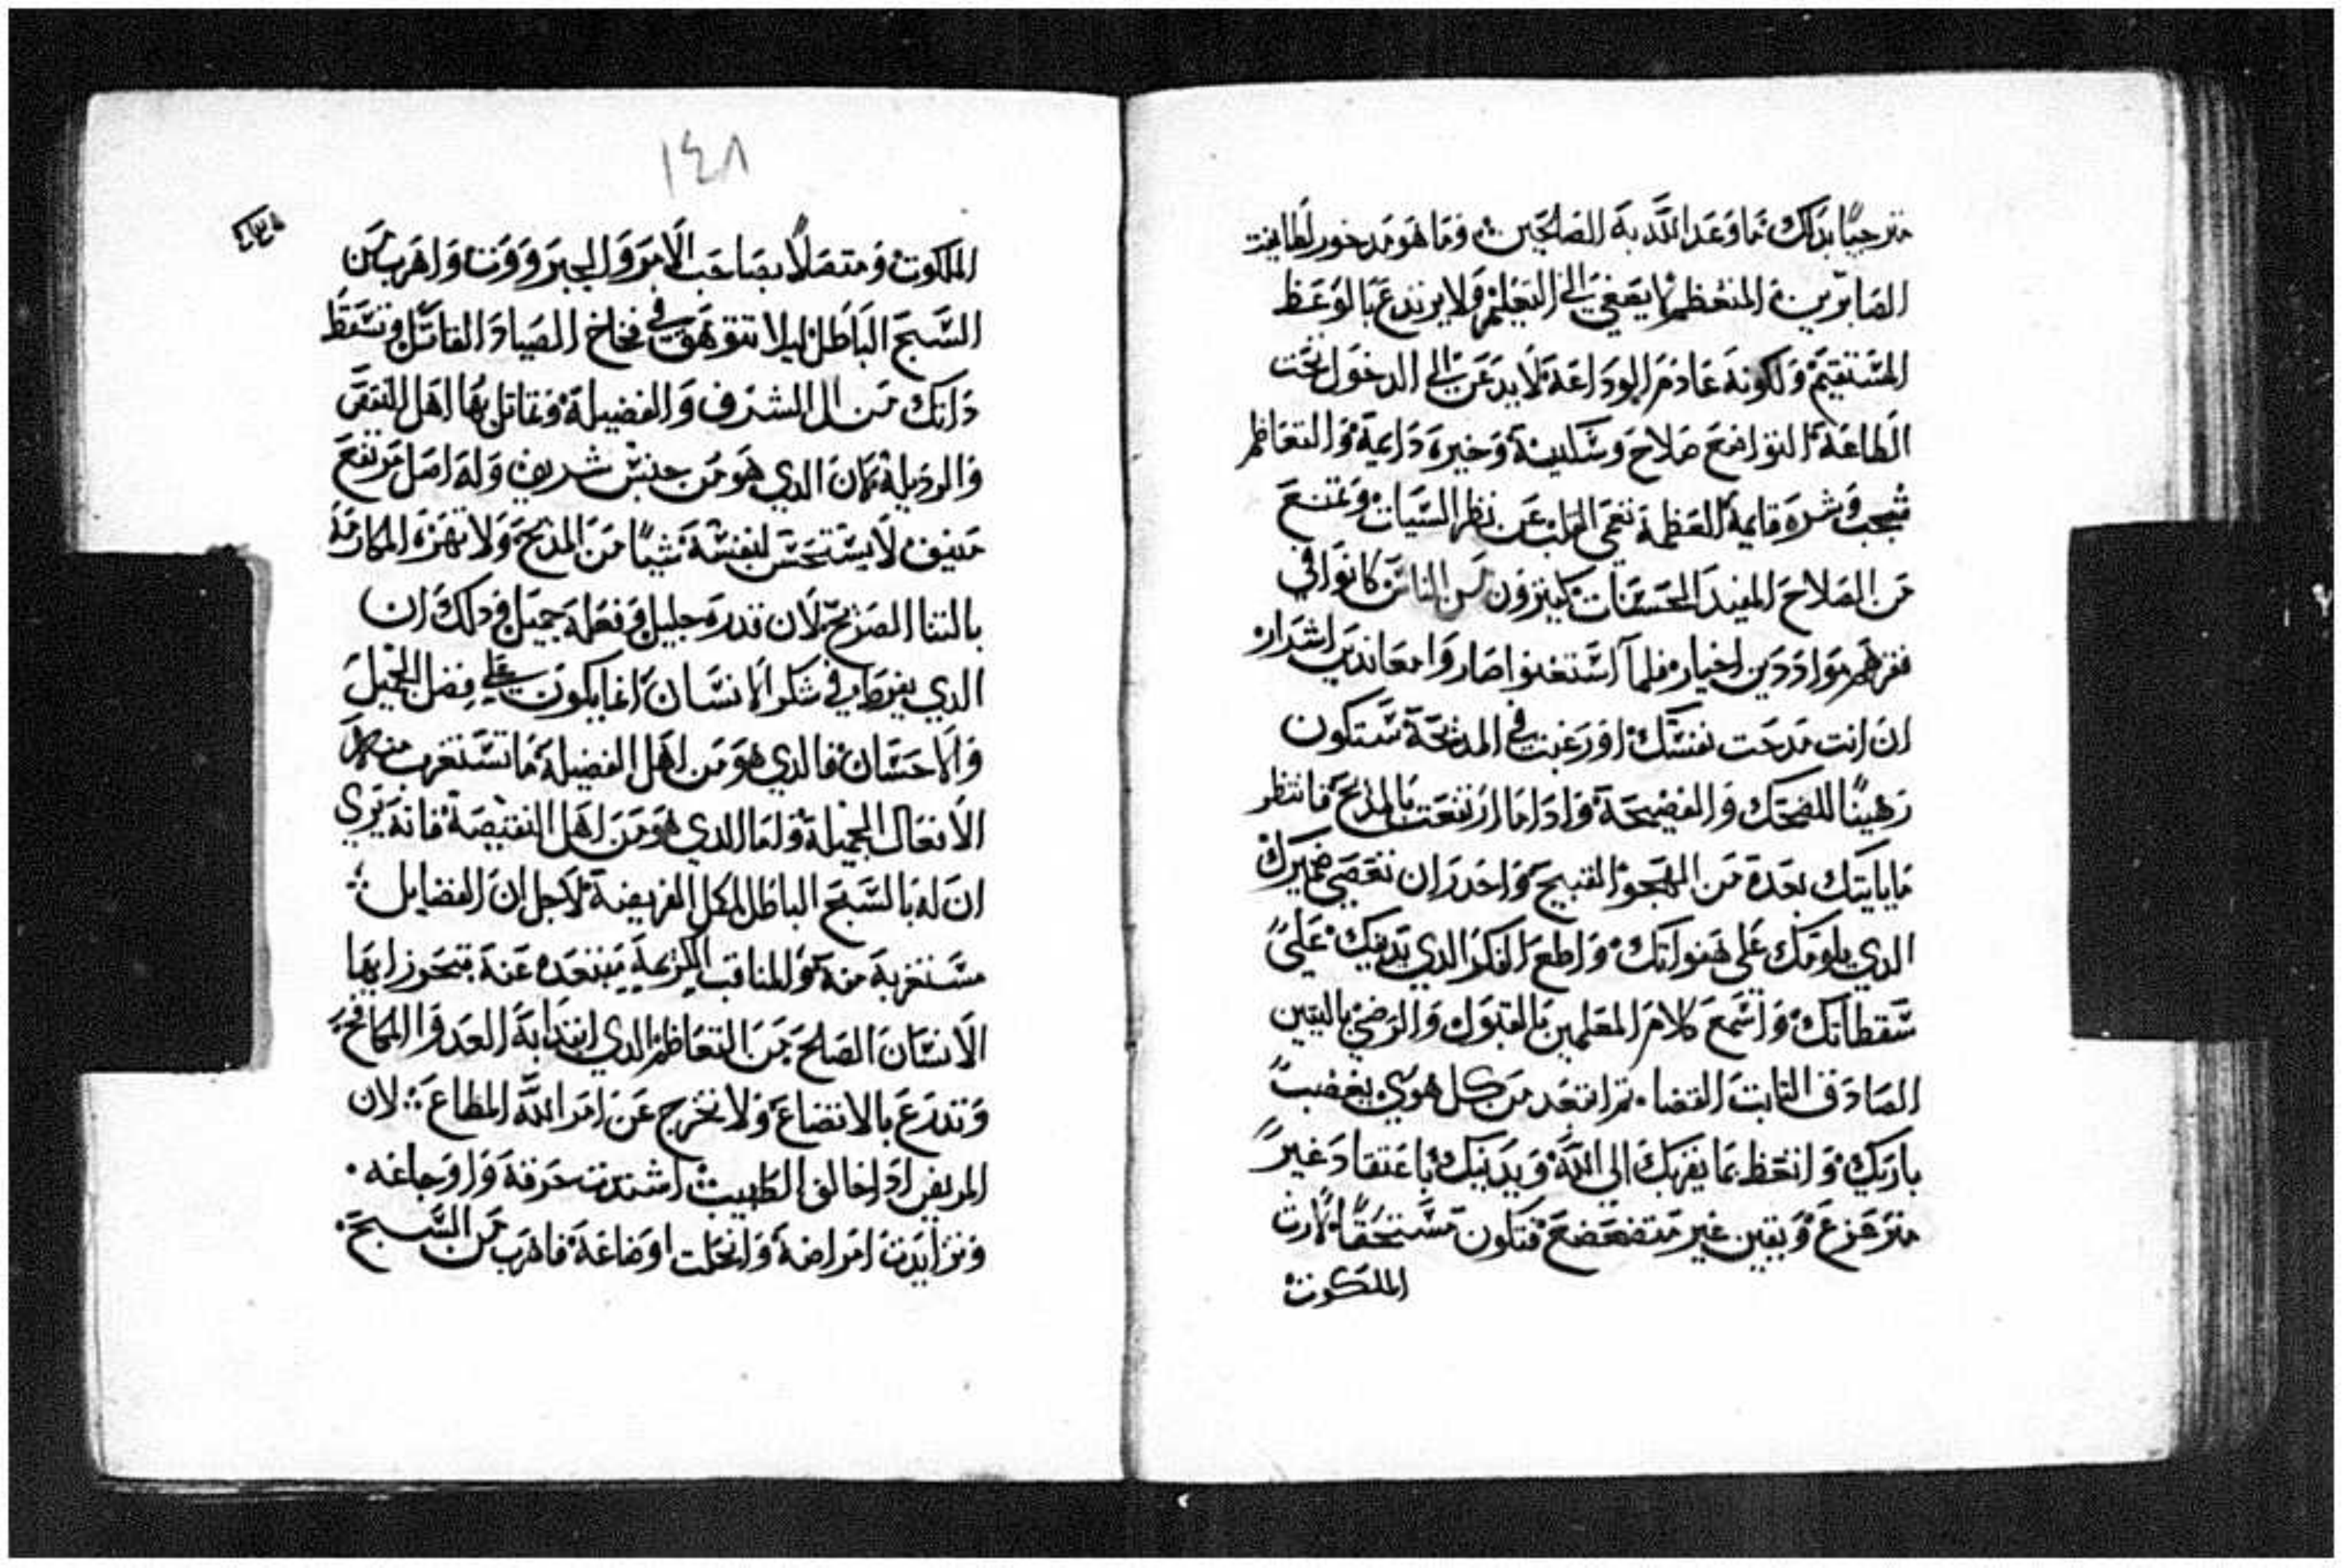 مترجيًا بذلك ما وعد الله به الصالحين وما هو مدخور لطايفة
الصابرين المتعظم لا يصغي الي التعليم ولا يرتدع بالوعظ
المستقيم ولكونه عادم الوداعة لا يدعن الي الدخول تحت
الطاعة التواضع صلاح وسكينة وخيرة دايمة والتعاظم
عجب وشره قايمة العظمة تعمي القلب عن نظر السيات وتمنع
من الصلاح المفيد الحسنات كثيرون من الناس كانوا في
فقرهم موادددين اخيار فلما استغنوا صاروا معاندين اشرار
ان انت مدحت نفسك او رغبت في المدحة ستكون
رهينًا للضحك والفضيحة وادا ما ارتفعت بالمديح فانتظر
ما ياتيك بعده من الهجو القبيح واحدر ان تعصي ضميرك
الدي يلومك علي هفواتك واطع الفكر الدي يدينك علي
سقطاتك واسمع كلام المعلمين بالقبول والرضي باليقين
الصادق الثابت القضا تم ابتعد من كل هوي يغضب
باريك واتعظ بما يقربك الي الله ويدنيك باعتقاد غير
متزعزع ويقين غير متضعضع فتكون مستحقًا لارت
الملكوت
١٤٨
الملكوت ومتصلًا بصاحب الامر والجبروت واهرب من
السبح الباطل ليلا تتوهق في فخاخ الصياد القاتل وتسقط
داتك من الشرف والفضيلة وتقاتل بها اهل النقص
والرديلة فان الدي هو من جنس شريف وله اصل مرتفع
منيف لا يستحسن لنفسه شيًا من المديح ولا تهزه المكارمة
بالتنا الصريح لان قدره جليل وفعله جميل ودلك ان
الدي يفرط في شكر الانسان انما يكون علي فضل الجميل
والاحسان فالدي هو من اهل الفضيلة ما تستغرب منه
الافعال الجميلة ولما الدي هو من اهل النقيصة فانه يري
ان له بالسبح الباطل اكل الفريضة لاجل ان الفضايل
مستغربة منه والمناقب الكريمة مبتعده عنه فتحوز ايها
الانسان الصلح من التعاظم الدي ابتدا به العدو المكافح
وتدرع بالاتضاع ولا تخرج عن امر الله المطاع لان
المريض ادا خالف الطبيب اشتدت حرقة واوجاعه
وتزايدت امراضه وانحلت اوضاعه فاهرب من السبح